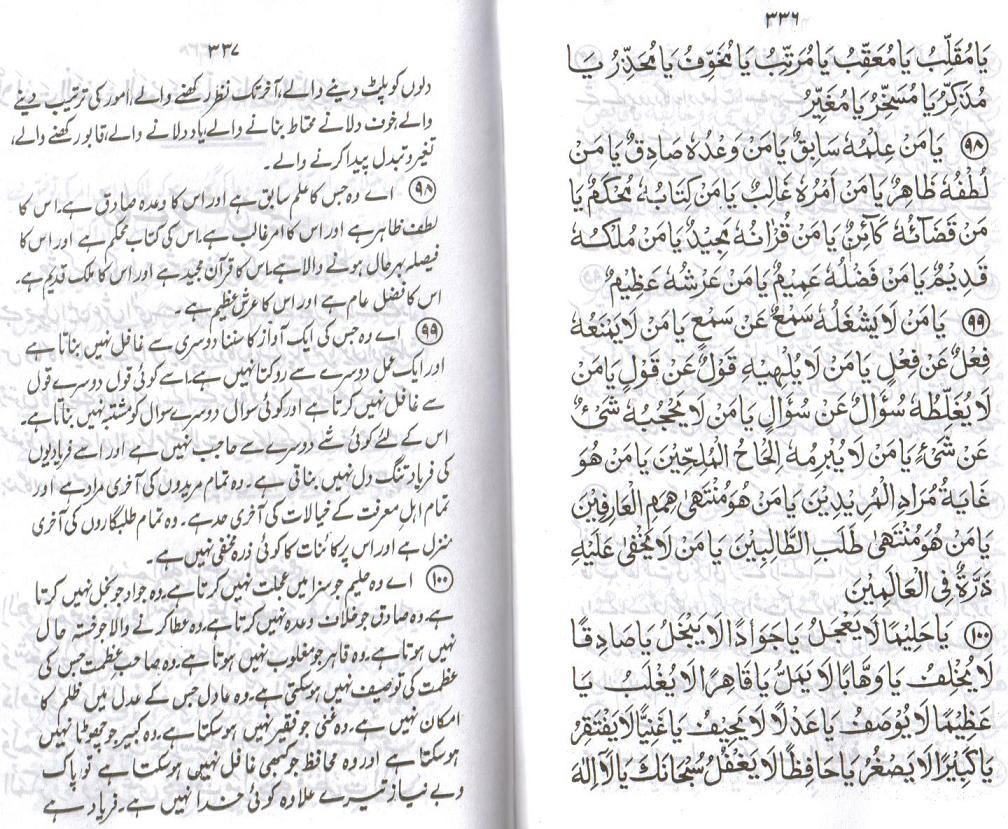 ٣٣٦
يَا مُقَلِّبُ يَا مُعَقِّبُ يَا مُرَتِّبُ يَا مُخَوِّفُ يَا مُحَذِّرُ يَا
مُذَكِّرُ يَا مُسَخِّرُ يَا مُغَيِّرُ
٩٨ يَا مَنْ عِلْمُهُ سَابِقٌ يَا مَنْ وَعْدُهُ صَادِقٌ يَا مَنْ
لُطْفُهُ ظَاهِرٌ يَا مَنْ اَمْرُهُ غَالِبٌ يَا مَنْ كِتَابُهُ مُحْكَمٌ يَا
مَنْ قَضَآئُهُ كَآئِنٌ يَا مَنْ قُرْاٰنُهُ مَجِيْدٌ يَا مَنْ مُلْكُهُ
قَدِيْمٌ يَا مَنْ فَضْلُهُ عَمِيْمٌ يَا مَنْ عَرْشُهُ عَظِيْمٌ
٩٩ يَا مَنْ لَا يَشْغَلُهُ سَمْعٌ عَنْ سَمْعٍ يَا مَنْ لَا يَمْنَعُهُ
فِعْلٌ عَنْ فِعْلٍ يَا مَنْ لَا يُلْهِيْهِ قَوْلٌ عَنْ قَوْلٍ يَا مَنْ
لَا يُغَلِّطُهُ سُؤَالٌ عَنْ سُؤَالٍ يَا مَنْ لَا يَحْجُبُهُ شَیْءٌ
عَنْ شَیْءٍ يَا مَنْ لَا يُبْرِمُهُ اِلْحَاحُ الْمُلِحِّيْنَ يَا مَنْ هُوَ
غَايَةُ مُرَادِ الْمُرِيْدِيْنَ يَا مَنْ هُوَ مُنْتَهٰى هِمَمِ الْعَارِفِيْنَ
يَا مَنْ هُوَ مُنْتَهٰى طَلَبِ الطَّالِبِيْنَ يَا مَنْ لَا يَخْفٰى عَلَيْهِ
ذَرَّةٌ فِی الْعَالَمِيْنَ
١٠٠ يَا حَلِيْمًا لَا يَعْجَلُ يَا جَوَادًا لَا يَبْخَلُ يَا صَادِقًا
لَا يُخْلِفُ يَا وَهَّابًا لَا يَمَلُّ يَا قَاهِرًا لَا يُغْلَبُ يَا
عَظِيْمًا لَا يُوْصَفُ يَا عَدْلًا لَا يَحِيْفُ يَا غَنِيًّا لَا يَفْتَقِرُ
يَا كَبِيْرًا لَا يَصْغُرُ يَا حَافِظًا لَا يَغْفُلُ سُبْحَانَكَ يَا لَآ اِلٰهَ
٣٣٧
دلوں کو پلٹ دینے والے، آخر تک نظر رکھنے والے، امور کی ترتیب دینے
والے، خوف دلانے محتاط بنانے والے، یاد دلانے والے، قابو رکھنے والے،
تغیر و تبدل پیدا کرنے والے۔
٩٨ اے وہ جس کا علم سابق ہے اور اس کا وعدہ صادق ہے۔ اس کا
لطف ظاہر ہے اور اس کا امر غالب ہے۔ اس کی کتاب محکم ہے اور اس کا
فیصلہ بہر حال ہونے والا ہے۔ اس کا قرآن مجید ہے اور اس کا ملک قدیم ہے۔
اس کا فضل عام ہے اور اس کا عرش عظیم ہے۔
٩٩ اے وہ جس کی ایک آواز کا سننا دوسری سے غافل نہیں بناتا ہے
اور ایک عمل دوسرے سے روکتا نہیں ہے۔ اسے کوئی قول دوسرے قول
سے غافل نہیں کرتا ہے اور کوئی سوال دوسرے سوال کو مشتبہ نہیں بناتا ہے۔
اس کے لئے کوئی شے دوسرے سے حاجب نہیں ہے اور اسے فریادیوں
کی فریاد تنگ دل نہیں بناتی ہے۔ وہ تمام مریدوں کی آخری مراد ہے اور
تمام اہل معرفت کے خیالات کی آخری حد ہے۔ وہ تمام طلبگاروں کی آخری
منزل ہے اور اس پر کائنات کا کوئی ذرہ مخفی نہیں ہے۔
١٠٠ اے وہ حلیم جو سزا میں عجلت نہیں کرتا ہے۔ وہ جواد جو بخل نہیں کرتا
ہے۔ وہ صادق جو خلاف وعدہ نہیں کرتا ہے۔ وہ عطا کرنے والا جو خستہ حال
نہیں ہوتا ہے۔ وہ قاہر جو مغلوب نہیں ہوتا ہے۔ وہ صاحب عظمت جس کی
عظمت کی توصیف نہیں ہوسکتی ہے۔ وہ عادل جس کے عدل میں ظلم کا
امکان نہیں ہے۔ وہ غنی جو فقیر نہیں ہوسکتا ہے۔ وہ کبیر جو چھوٹا نہیں
ہوسکتا ہے اور وہ محافظ جو کبھی غافل نہیں ہوسکتا ہے تو پاک
و بے نیاز تیرے علاوہ کوئی خدا نہیں ہے۔ فریاد ہے